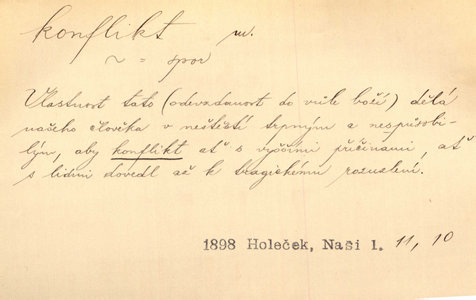 konflikt m.
~ = spor
Vlastnost tato (odevzdanost do vůle boží) dělá
našeho člověka v neštěstí trpným a nezpůsobi-
lým, aby konflikt ať s vyššími příčinami, ať
s lidmi dovedl až k tragickému rozuzlení.
1898 Holeček, Naši 1. 11, 10